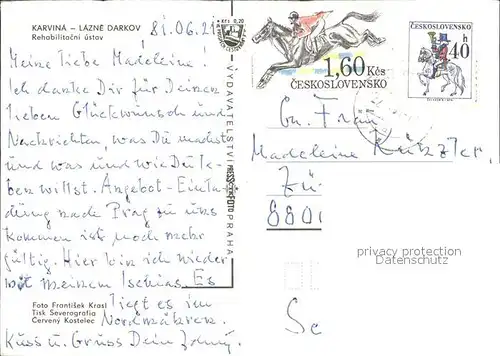 KARVINÁ – LÁZNĚ DARKOV
Rehabilitační ústav
81.06.21
Meine liebe Madeleine!
Ich danke Dir für Deinen
lieben Glückwunsch und
Nachrichten, was Du machst
und was und wie Du le-
ben willst. Angebot-Einla-
dung nach Prag zu uns
kommen ist noch mehr
gültig. Hier bin ich wieder
mit meinem Ischias. Es
liegt es im
Nordmähren.
Kuss u. Gruss Dein
Foto František Krasl
Tisk Severografia
Červený Kostelec
Kčs 0,70
VYDAVATELSTVÍ PRESSFOTO PRAHA
1,60 Kčs
ČESKOSLOVENSKO
ČESKOSLOVENSKO
40 h
Frau
Madeleine
8801
privacy protection
Datenschutz